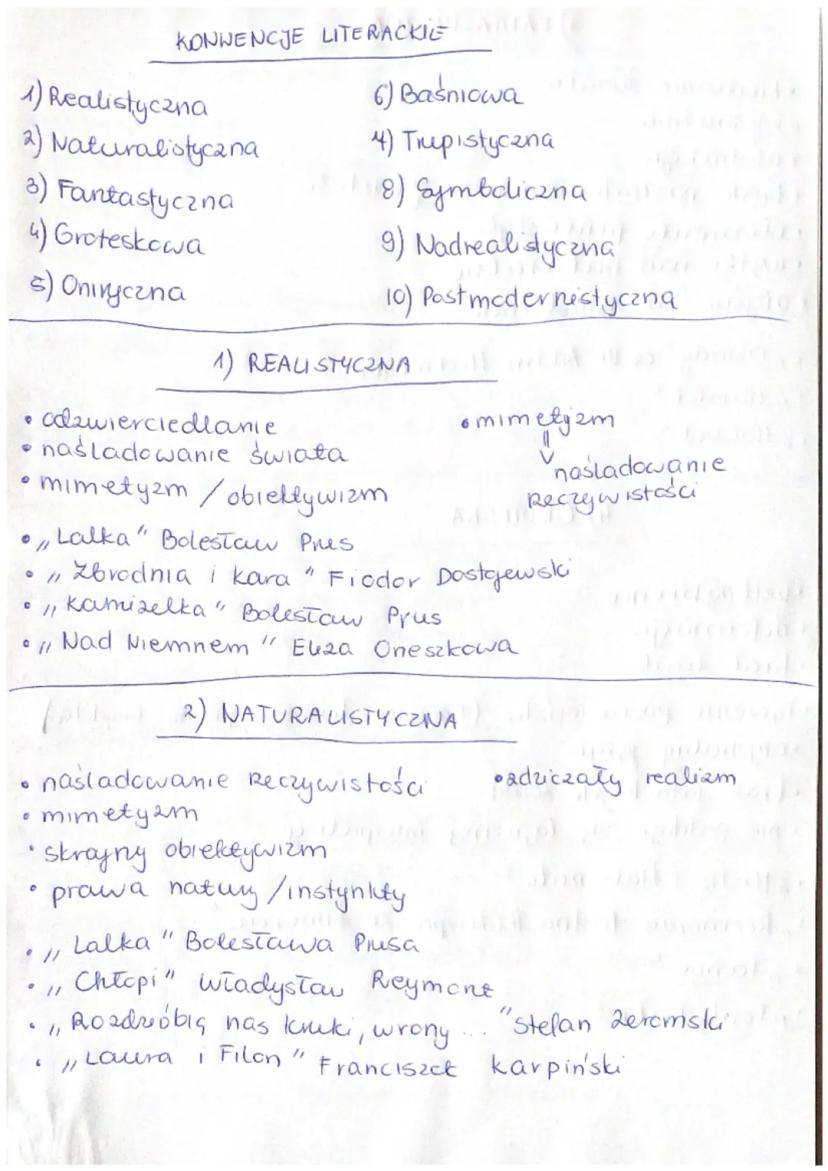 KONWENCJE LITERACKIE
1) Realistyczna
2) Naturalistyczna
3) Fantastyczna
4) Groteskowa
5) Oniryczna
6) Baśniowa
4) Turpistyczna
8) Symboliczna
9) Nadrealistyczna
10) Postmodernistyczna
1) REALISTYCZNA
• odzwierciedlanie
• naśladowanie świata
• mimetyzm / obiektywizm
• mimetyzm
⇓
naśladowanie
rzeczywistości
• „Lalka" Bolesław Prus
• „Zbrodnia i kara" Fiodor Dostojewski
• „Kamizelka" Bolesław Prus
• „Nad Niemnem" Eliza Orzeszkowa
2) NATURALISTYCZNA
• naśladowanie rzeczywistości
• mimetyzm
• skrajny obiektywizm
• prawa natury / instynkty
• zdziczały realizm
• „Lalka" Bolesława Prusa
• „Chłopi" Władysław Reymont
• „Rozdzióbią nas kruki, wrony..." Stefan Żeromski
• „Laura i Filon" Franciszek Karpiński